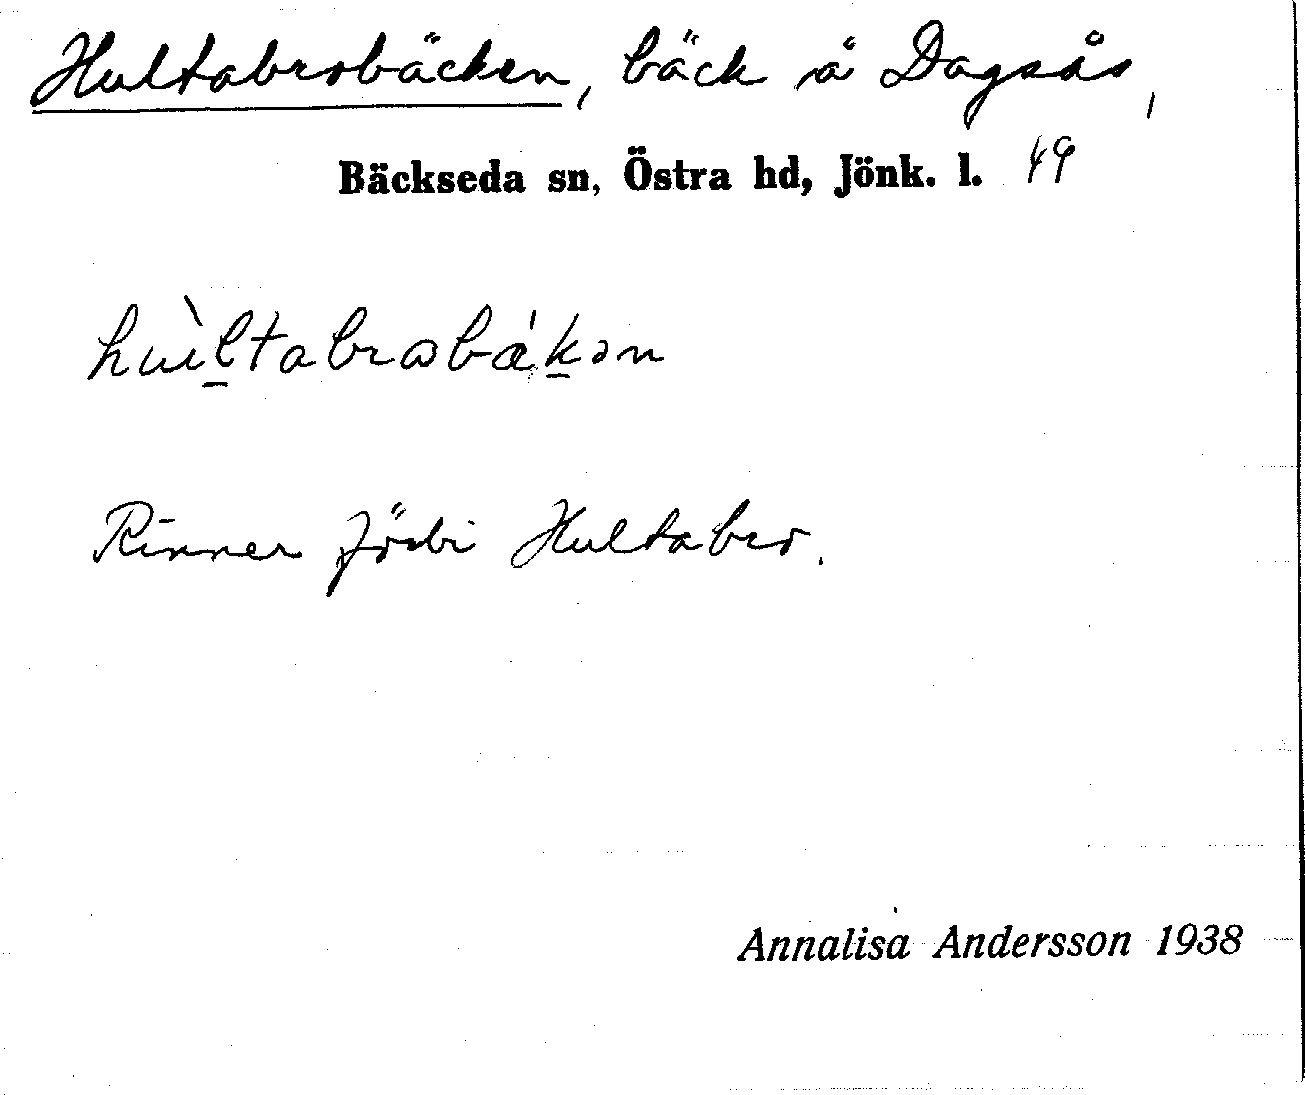 Hultabrobäcken, bäck å Dagsås,
Bäckseda sn, Östra hd, Jönk. l. 49
Rinner förbi Hultabro.
Annalisa Andersson 1938